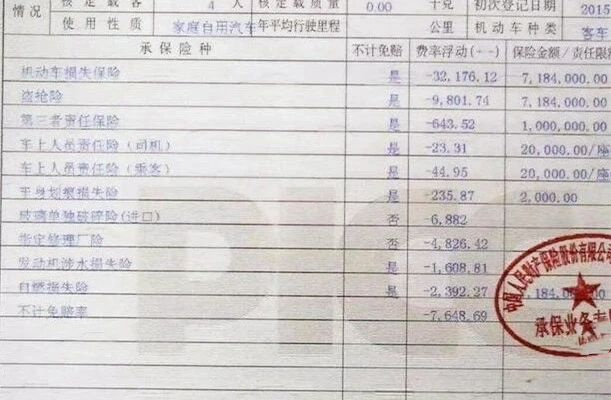 情况 核定载客 4 人 核定载质量 0.00 千克 初次登记日期 2015
使用性质 家庭自用汽车 年平均行驶里程 公里 机动车种类 客车
承保险种 不计免赔 费率浮动(--) 保险金额/责任限额
机动车损失保险 是 -32,176.12 7,184,000.00
盗抢险 是 -9,801.74 7,184,000.00
第三者责任保险 是 -643.52 1,000,000.00
车上人员责任险(司机) 是 -23.31 20,000.00/座
车上人员责任险(乘客) 是 -44.95 20,000.00/座
车身划痕损失险 是 -235.87 2,000.00
玻璃单独破碎险(进口) 否 -6,882
指定修理厂险 否 -4,826.42
发动机涉水损失险 是 -1,608.81
自燃损失险 是 -2,392.27 184,000.00
不计免赔率 -7,648.69
PICC
中国人民财产保险股份有限公司
承保业务专